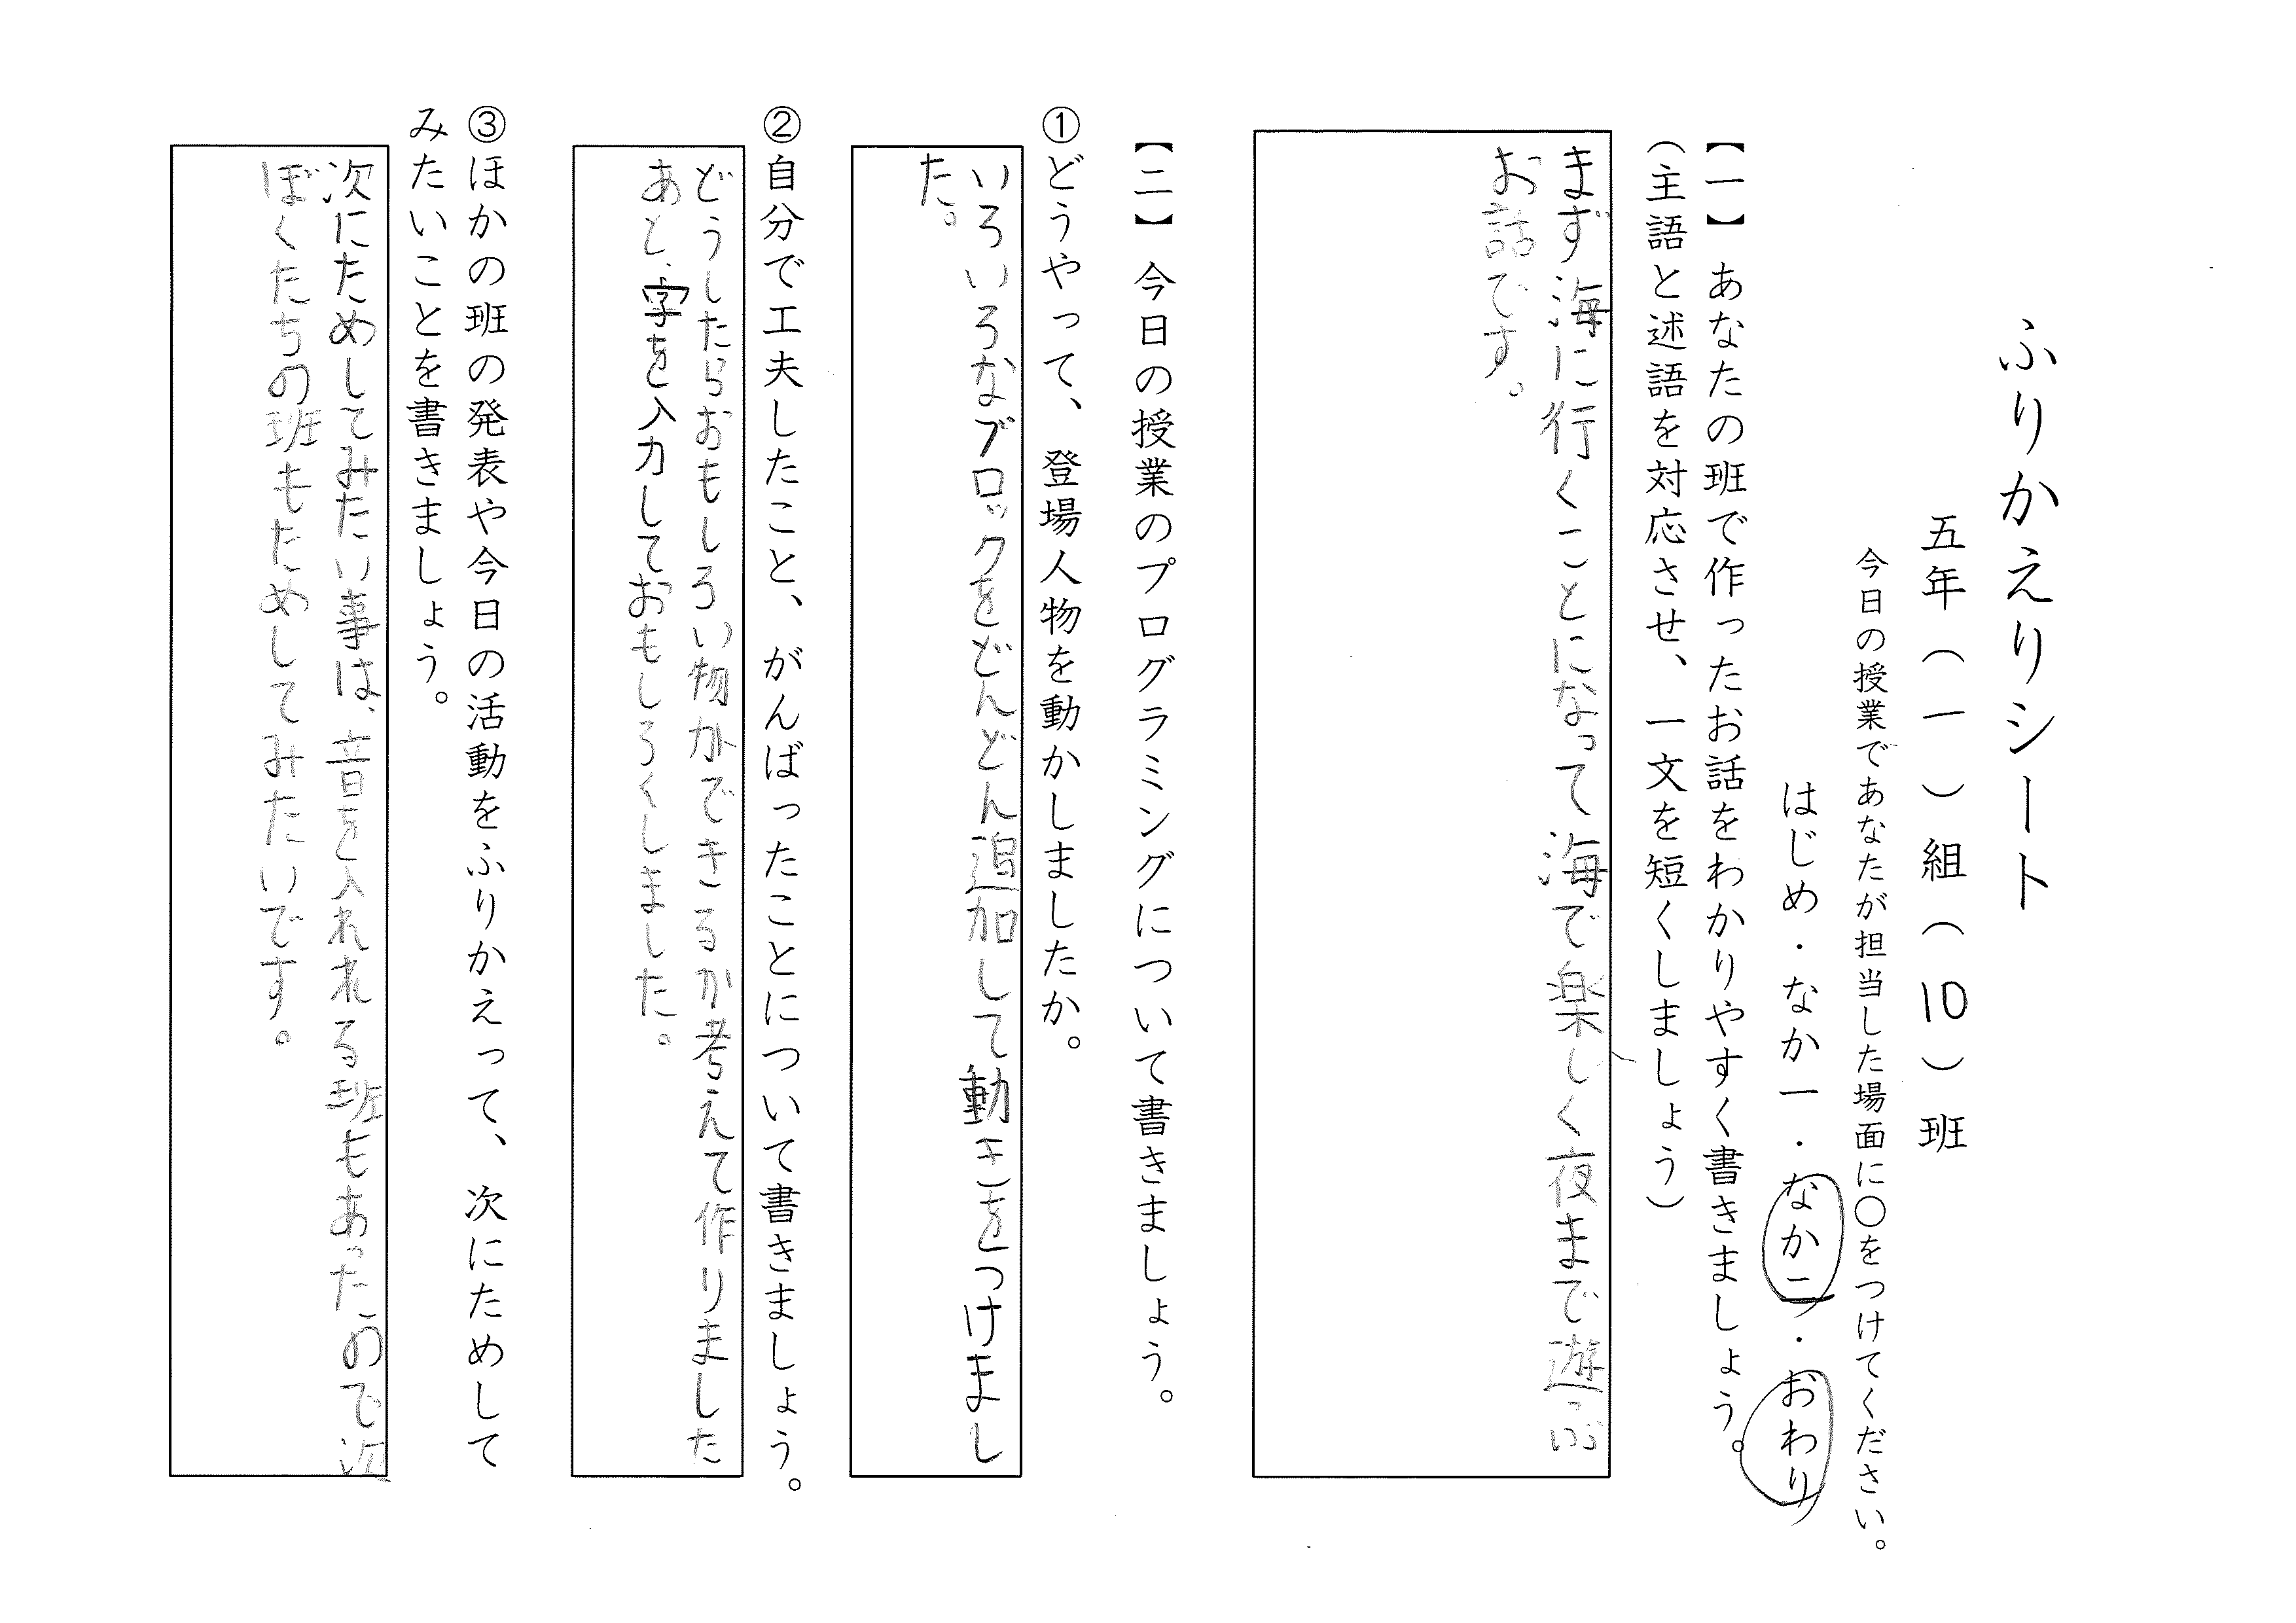 ふりかえりシート
五年（一）組（10）班
今日の授業であなたが担当した場面に○をつけてください。
はじめ・なか一・なか二・おわり
【一】あなたの班で作ったお話をわかりやすく書きましょう。
（主語と述語を対応させ、一文を短くしましょう）
まず海に行くことになって海で楽しく夜まで遊っぶ
お話です。
【二】今日の授業のプログラミングについて書きましょう。
①どうやって、登場人物を動かしましたか。
いろいろなブロックをどんどん追加して動きをつけまし
た。
②自分で工夫したこと、がんばったことについて書きましょう。
どうしたらおもしろい物ができるか考えて作りました
あと、字を入力しておもしろくしました。
③ほかの班の発表や今日の活動をふりかえって、次にためして
みたいことを書きましょう。
次にためしてみたい事は、音を入れれる班もあったので次
ぼくたちの班もためしてみたいです。